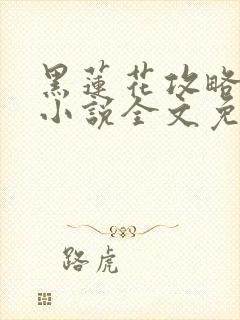 黑蓮花攻略
小說全文免
路虎